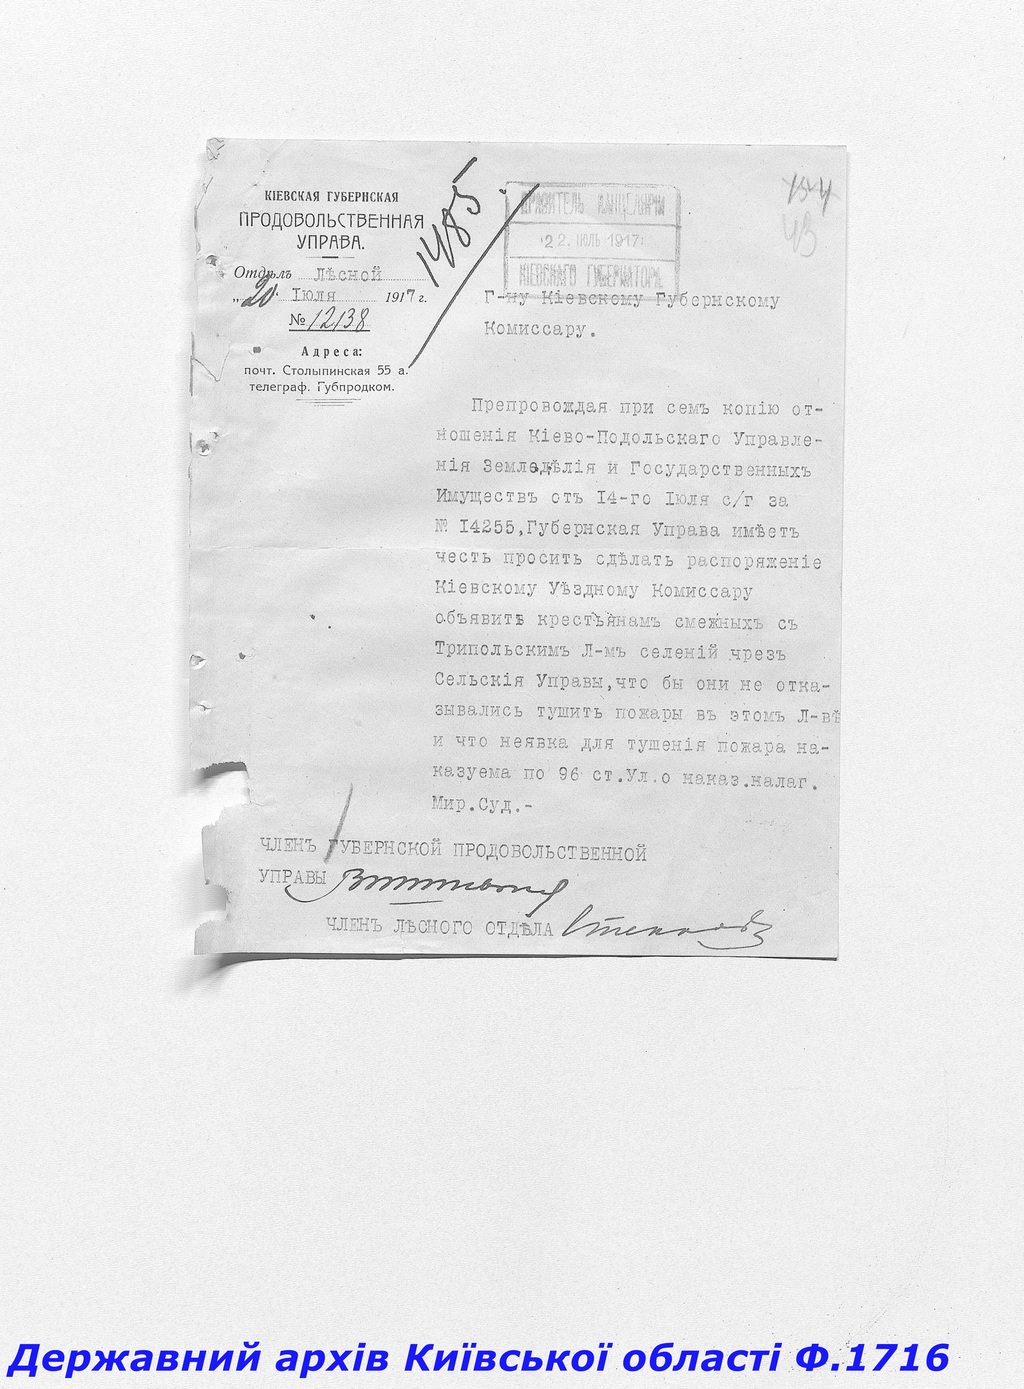 КІЕВСКАЯ ГУБЕРНСКАЯ
ПРОДОВОЛЬСТВЕННАЯ
УПРАВА.
Отдѣлъ Лѣсной
„20" Iюля 1917 г.
№ 12138
Адреса:
почт. Столыпинская 55 а.
телеграф. Губпродком.
1485
ПРАВИТЕЛЬ КАНЦЕЛЯРІИ
22. ИЮЛЬ 1917
КІЕВСКАГО ГУБЕРНАТОРА.
43
Г-ну Кіевскому Губернскому
Комиссару.
Препровождая при семъ копію от-
ношенія Кіево-Подольскаго Управле-
нія Земледѣлія и Государственныхъ
Имуществъ отъ I4-го Iюля с/г за
№ I4255,Губернская Управа имѣетъ
честь просить сдѣлать распоряженіе
Кіевскому Уѣздному Комиссару
объявить крестьянамъ смежныхъ съ
Трипольскимъ Л-мъ селеній чрезъ
Сельскія Управы,что бы они не отка-
зывались тушить пожары въ этомъ Л-вѣ
и что неявка для тушенія пожара на-
казуема по 96 ст.Ул.о наказ.налаг.
Мир.Суд.-
ЧЛЕНЪ ГУБЕРНСКОЙ ПРОДОВОЛЬСТВЕННОЙ
УПРАВЫ
ЧЛЕНЪ ЛѢСНОГО ОТДѢЛА
Державний архів Київської області Ф.1716